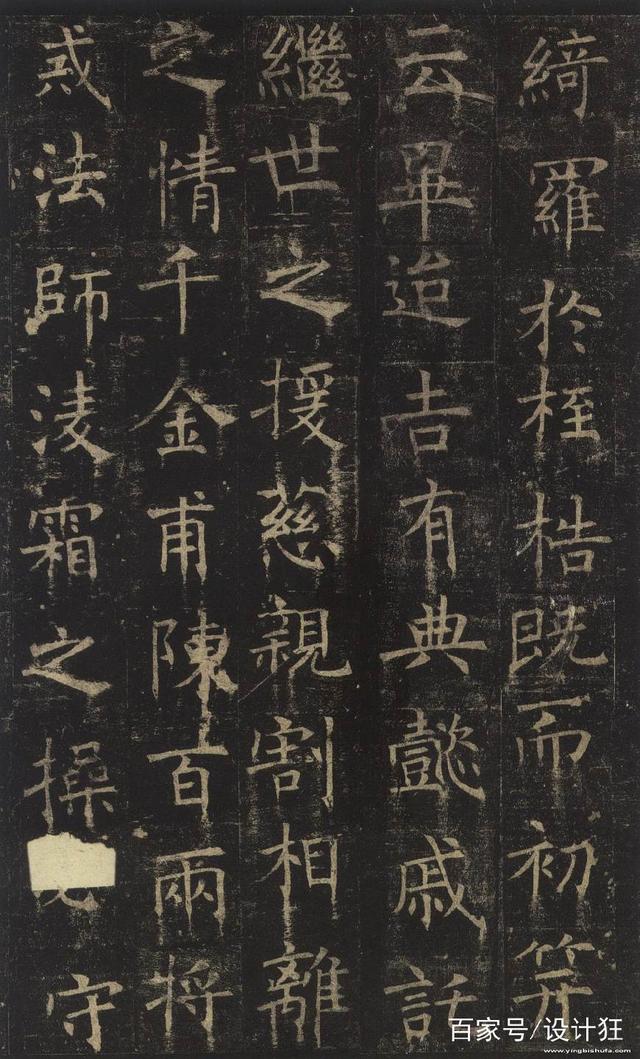 綺羅於桎梏既而初笄
云畢迨吉有典懿戚託
繼世之援慈親割相離
之情千金甫陳百兩將
戒法師淩霜之操守
百家号/设计狂
www.yingbishufa.com